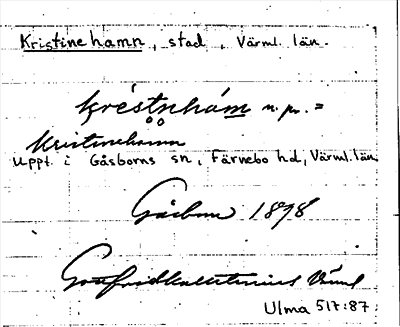 Kristinehamn, stad, Värml. län.
kréstnhám n. pr. =
Kristinehamn
Uppt. i Gåsborns sn, Färnebo hd, Värml. län
Gåsborn 1898
Gottfrid Kallstenius Värml
Ulma 517:87